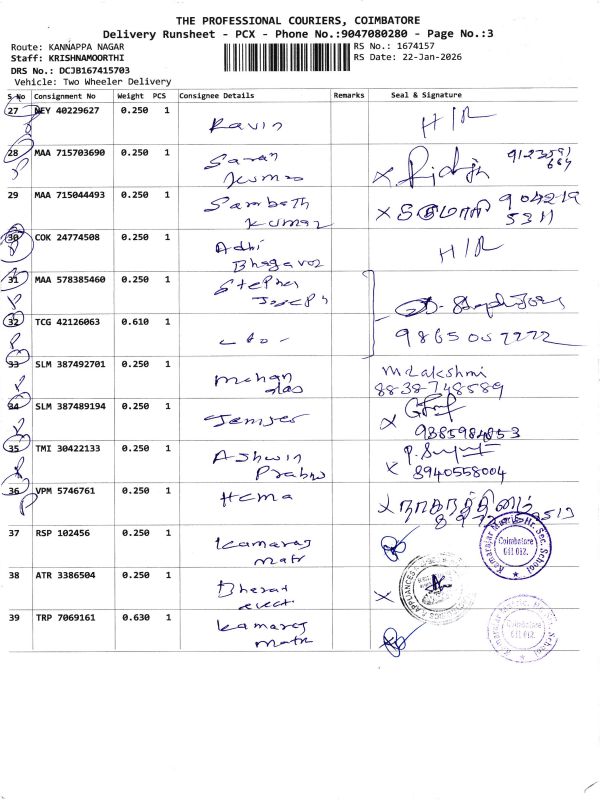 THE PROFESSIONAL COURIERS, COIMBATORE
Delivery Runsheet - PCX - Phone No.:9047080280 - Page No.:3
Route: KANNAPPA NAGAR RS No.: 1674157
Staff: KRISHNAMOORTHI RS Date: 22-Jan-2026
DRS No.: DCJB167415703
Vehicle: Two Wheeler Delivery
S.No Consignment No Weight PCS Consignee Details Remarks Seal & Signature
27 NEY 40229627 0.250 1 Kavin H/R
28 MAA 715703690 0.250 1 Saran
Kumar
29 MAA 715044493 0.250 1 Sambath 904219
Kumar 5311
30 COK 24774508 0.250 1 Adhi H/R
31 MAA 578385460 0.250 1 Stephen
Joseph
32 TCG 42126063 0.610 1 - do -
33 SLM 387492701 0.250 1 Mohan M. Lakshmi
das 8838748589
34 SLM 387489194 0.250 1
9385984853
35 TMI 30422133 0.250 1 Ashwin
Prabhu 8940558004
36 VPM 5746761 0.250 1 Hema நாகரத்தினம்
37 RSP 102456 0.250 1 Kamaraj
matr
Kamarajar Matric. Hr. Sec. School
Coimbatore
641 012.
38 ATR 3386504 0.250 1 Bharat
elect
39 TRP 7069161 0.630 1 Kamaraj
matr
Coimbatore
641 012.